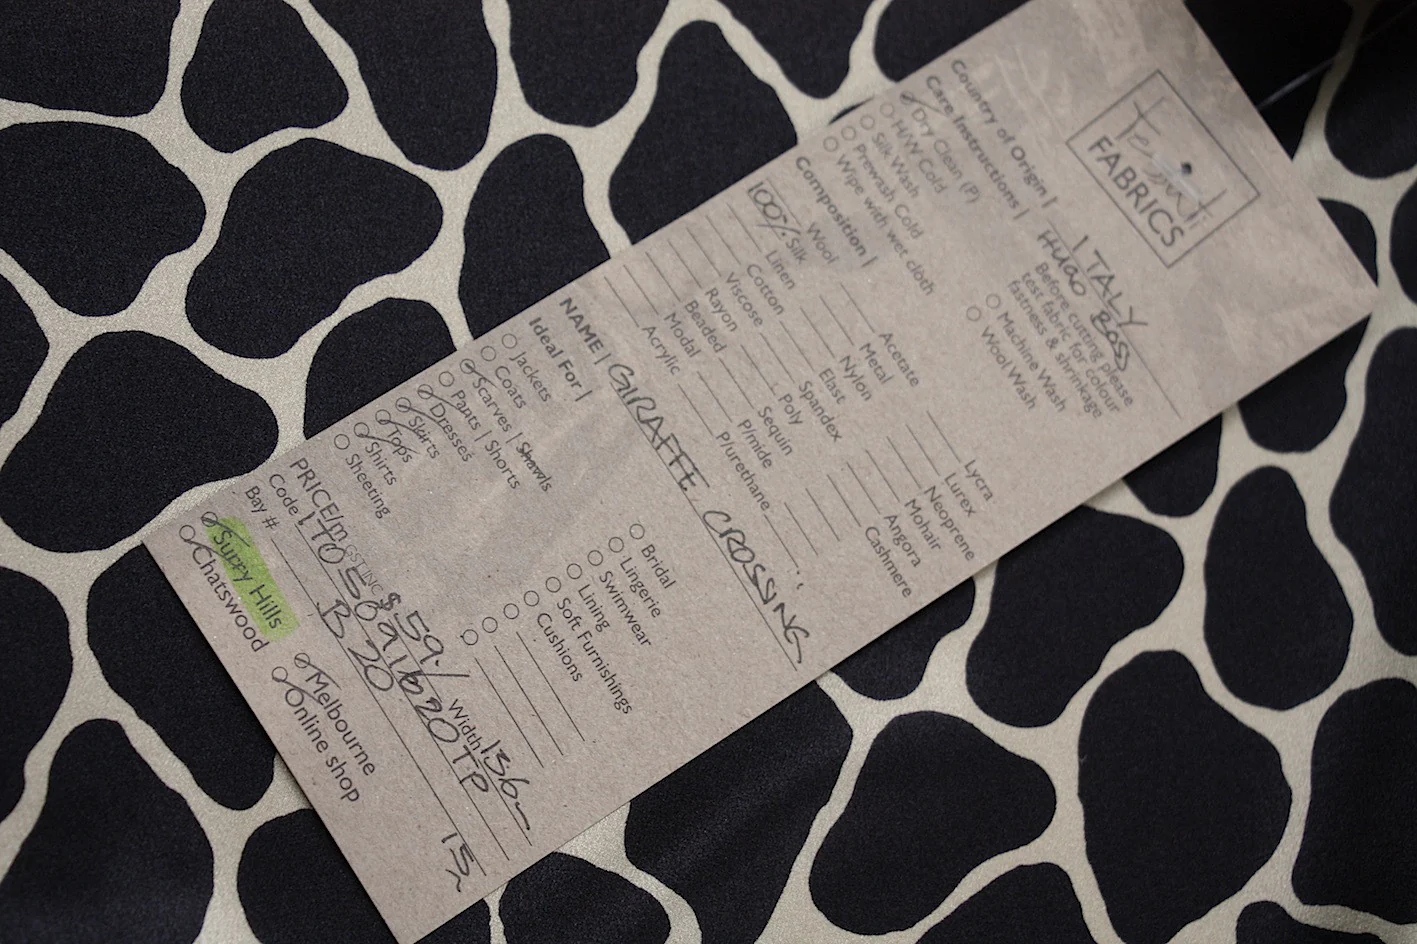 Tessuti
FABRICS
Country of Origin | ITALY
HUGO BOSS
Care Instructions | Before cutting please
test fabric for colour
fastness & shrinkage
Dry Clean (P)
H/W Cold
Silk Wash
Prewash Cold
Wipe with wet cloth
Machine Wash
Wool Wash
Composition |
Wool
100% Silk
Linen
Cotton
Viscose
Rayon
Beaded
Modal
Acrylic
Acetate
Metal
Nylon
Elast
Spandex
Poly
Sequin
P/mide
P/urethane
Lycra
Lurex
Neoprene
Mohair
Angora
Cashmere
NAME | GIRAFFE CROSSING
Ideal For |
Jackets
Coats
Scarves | Shawls
Pants | Shorts
Dresses
Skirts
Tops
Shirts
Sheeting
Bridal
Lingerie
Swimwear
Lining
Soft Furnishings
Cushions
PRICE/m GST INC $59./ Width 136
Code ITO5091620TP
Bay # B20 15
Surry Hills
Chatswood
Melbourne
Online shop